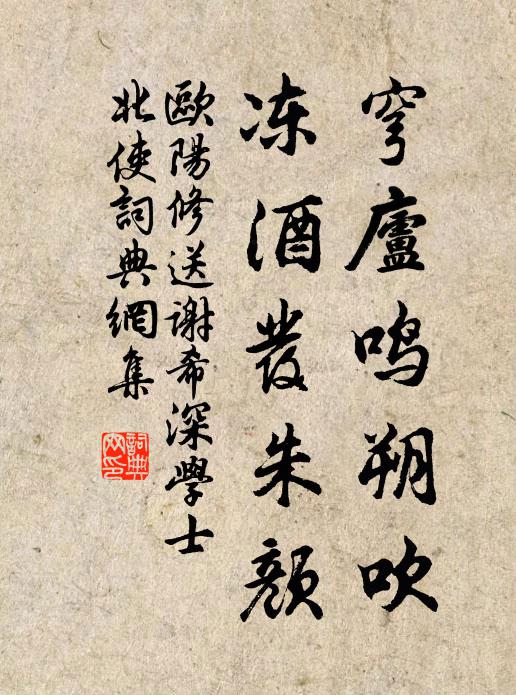 穹廬鳴朔吹
冻酒發朱颜
歐陽修送谢希深學士
北使詞典網集
詞典网印